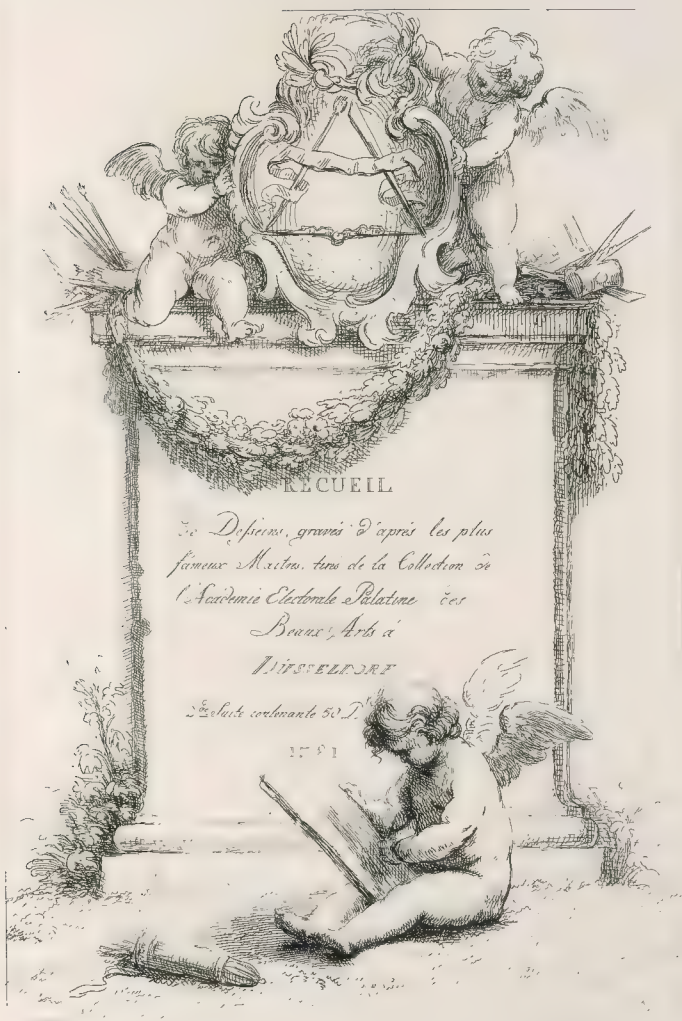 RECUEIL
de Desseins, gravés d'aprés les plus
fameux Maitres, tirés de la Collection de
l'Academie Electorale Palatine des
Beaux Arts á
DÜSSELDORF
2de Suite contenante 50 P.